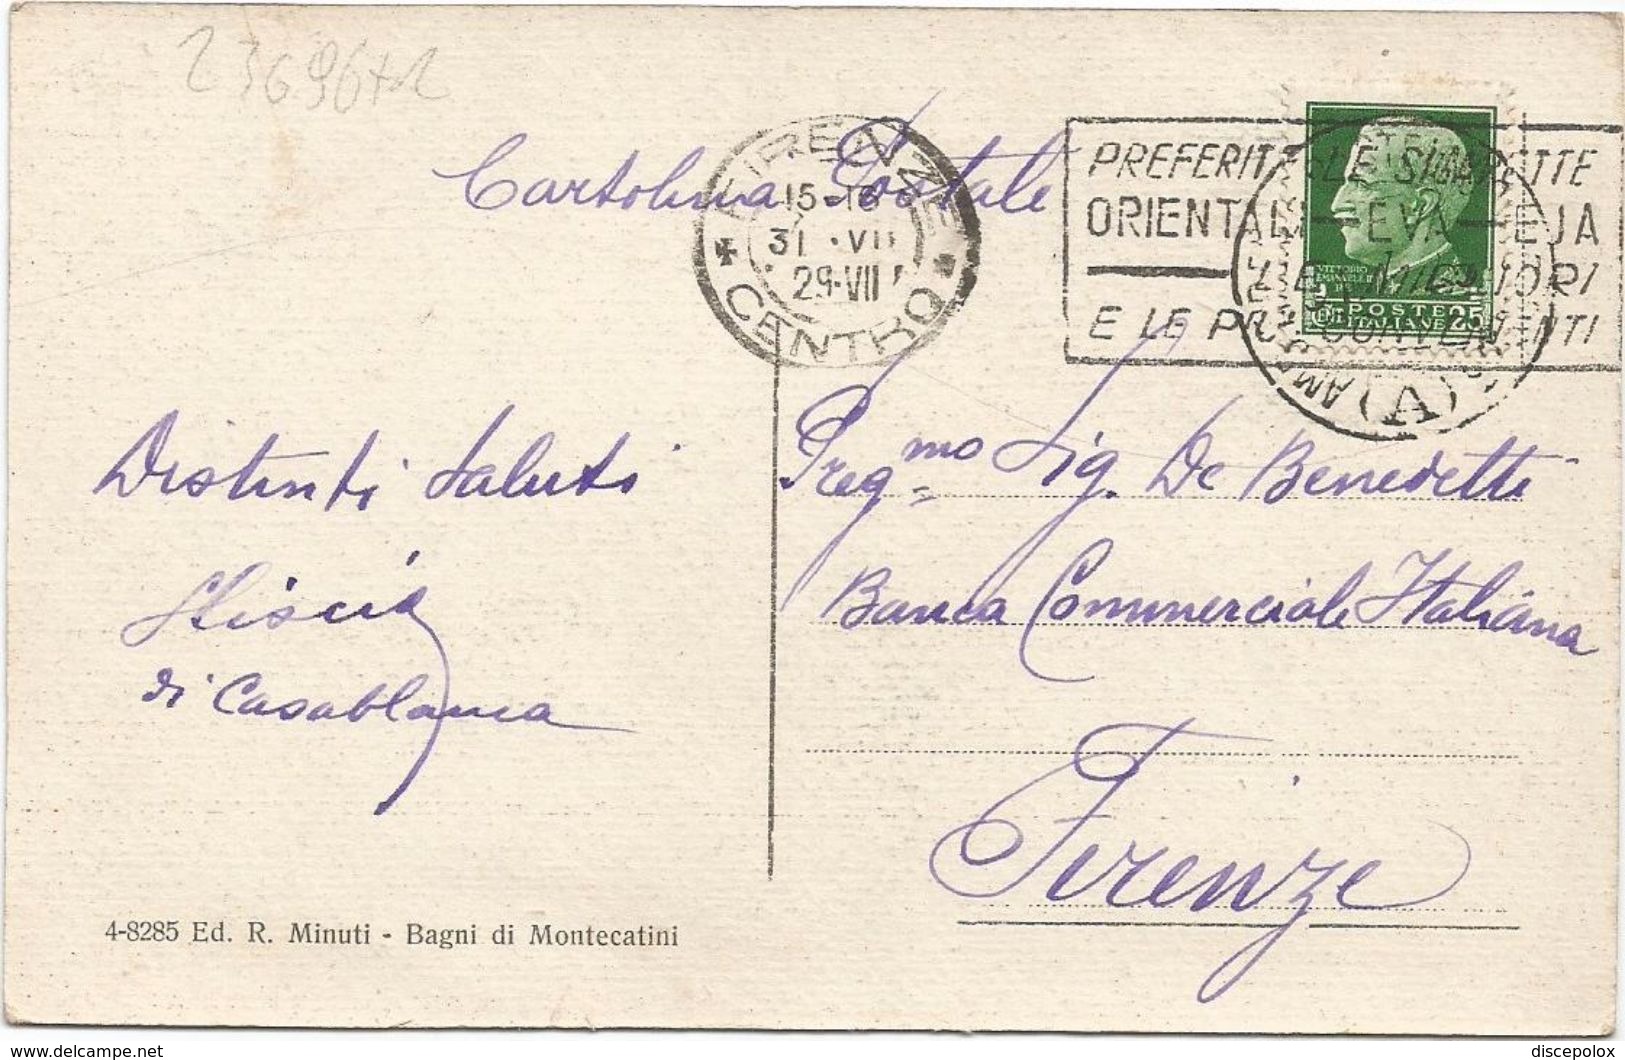 Cartolina Postale
FIRENZE
15-18
31 . VII
29-VII
CENTRO
PREFERITE LE SIGARETTE
ORIENTALI - EVA - EJA
LE MIGLIORI
E LE PIÙ CONVENIENTI
VITTORIO
EMANUELE
POSTE
ITALIANE
CENT 25
(A)
Distinti Saluti
di Casablanca
Preg.mo Sig. De Benedetti
Banca Commerciale Italiana
Firenze
4-8285 Ed. R. Minuti - Bagni di Montecatini
www.delcampe.net
discepolox